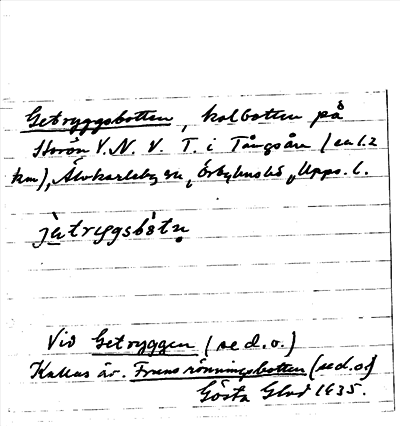 Getryggsbotten, kolbotten på
Storön V.N.V. T. i Tångsån (ca 1.2
km), Älvkarleby sn, Örbyhus hd, Upps. l.
jètryggsbòtn
Vid Getryggen (se d.o.)
Kallas äv. Frens rönningsbotten (se d.o.)
Gösta Glad 1935.